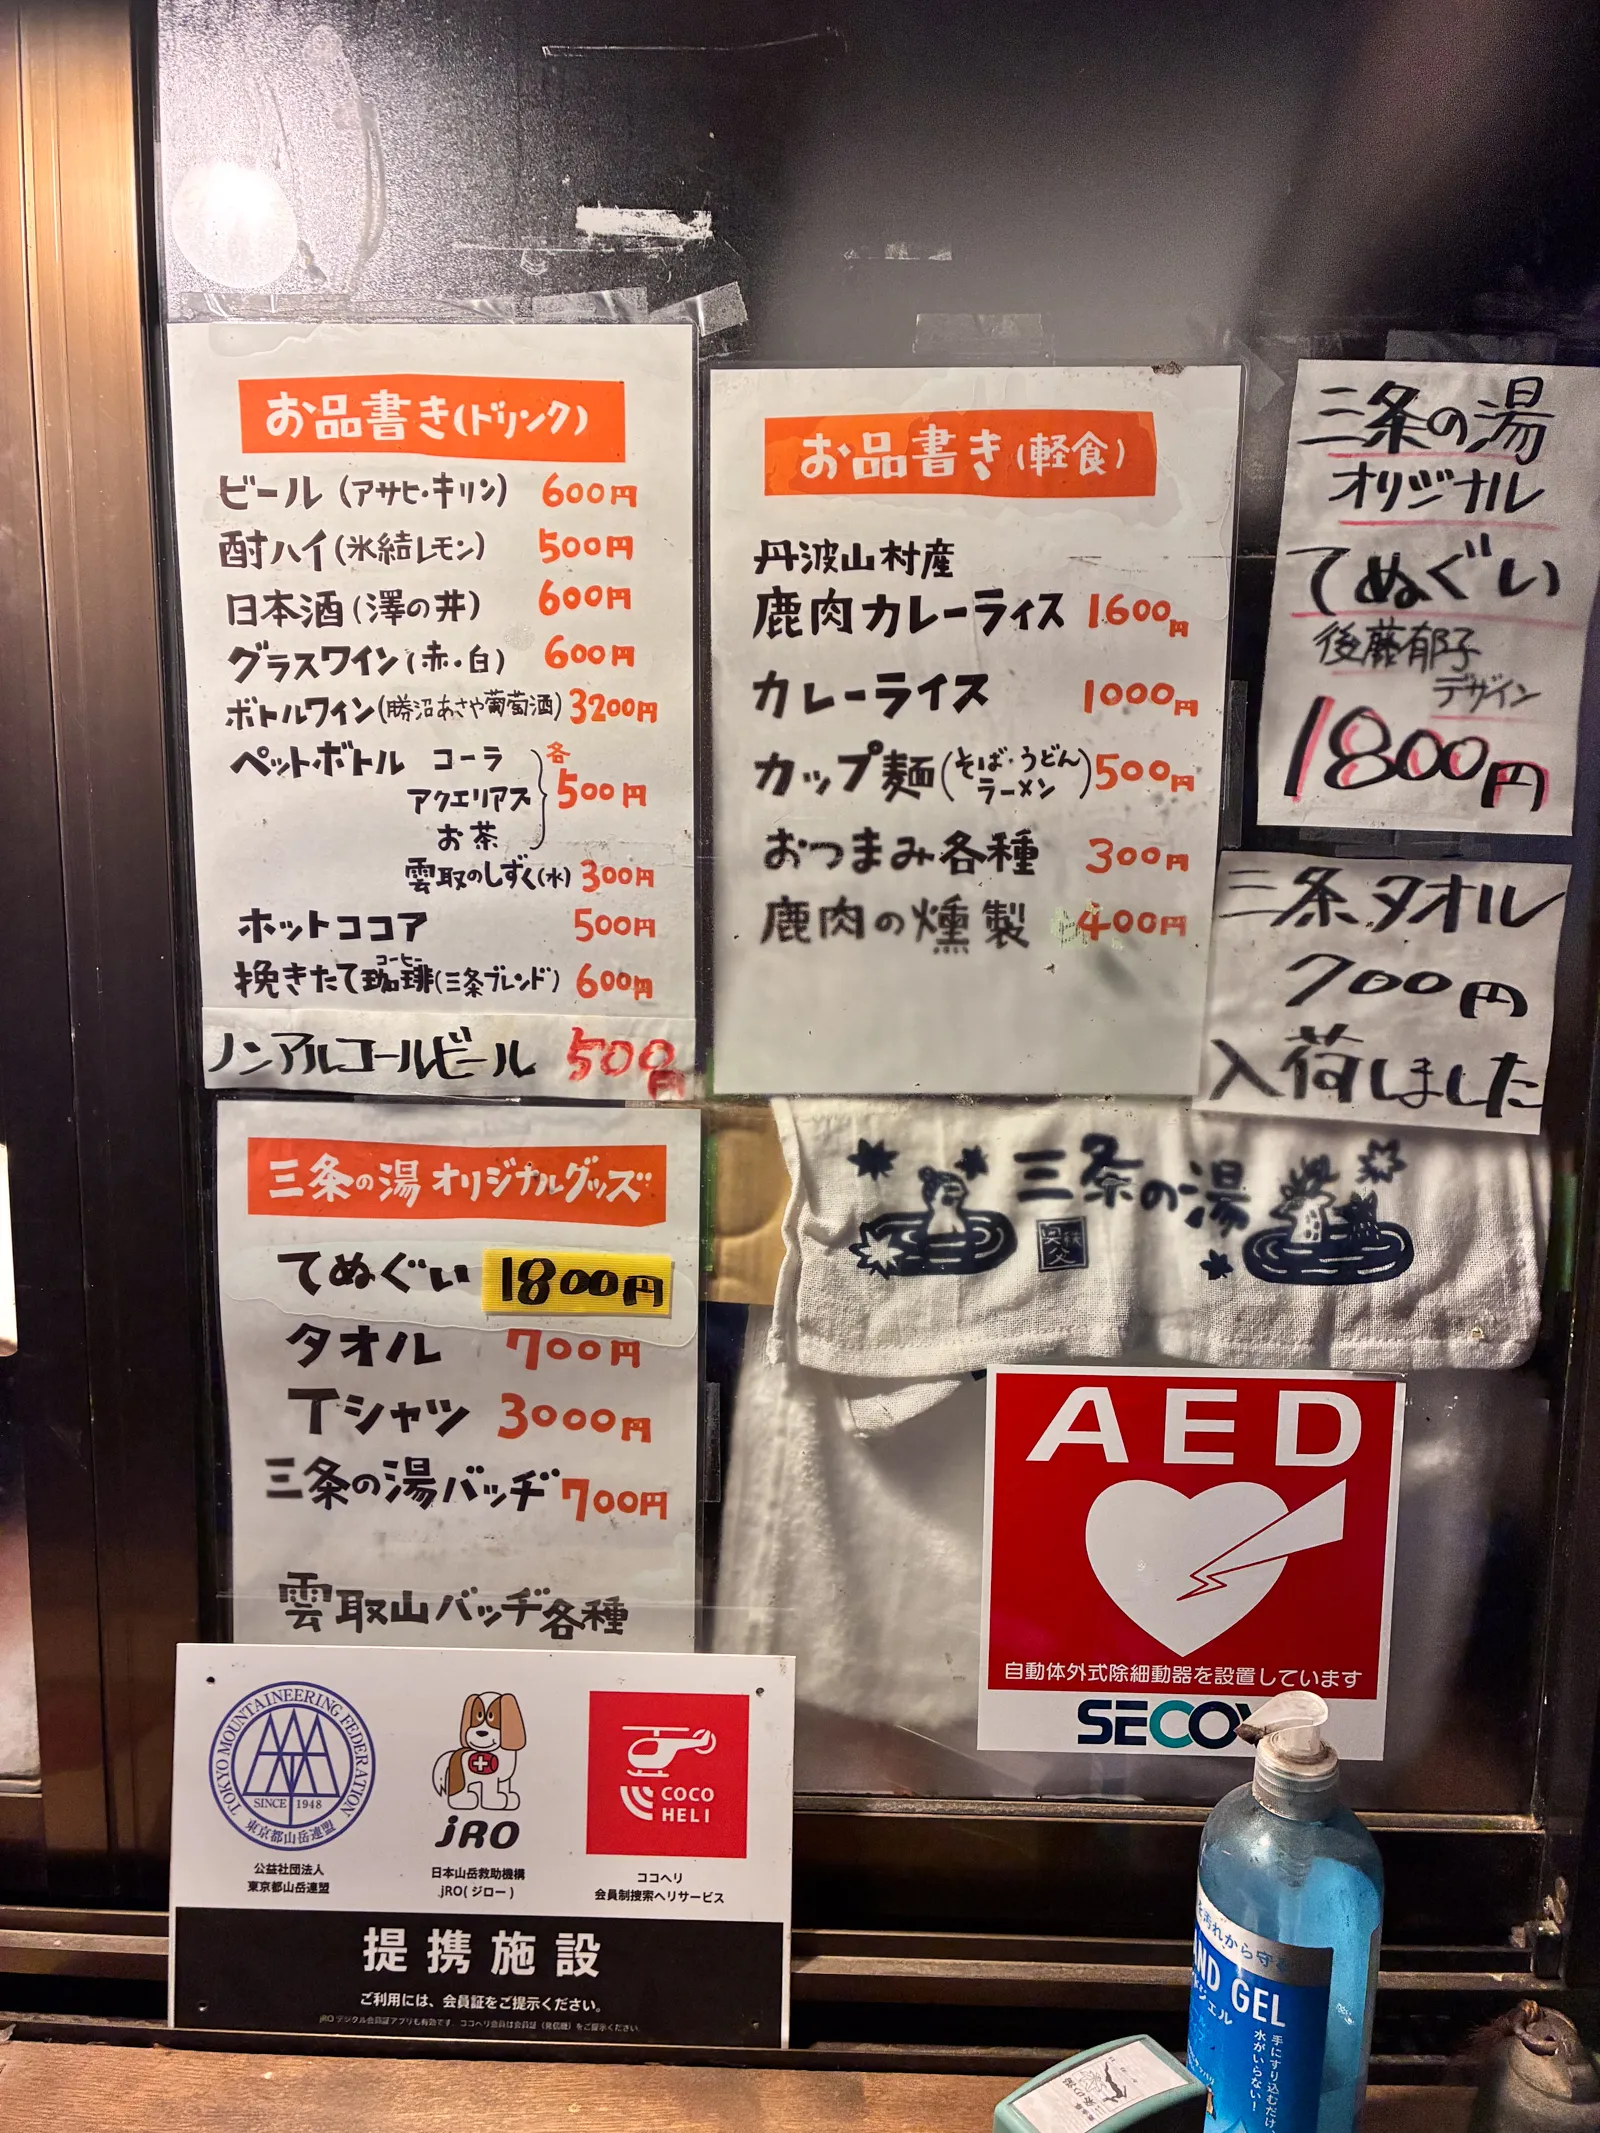 お品書き(ドリンク)
ビール(アサヒ・キリン) 600円
酎ハイ(氷結レモン) 500円
日本酒(澤の井) 600円
グラスワイン(赤・白) 600円
ボトルワイン(勝沼あさや葡萄酒) 3200円
ペットボトル コーラ 各
アクエリアス 500円
お茶
雲取のしずく(水) 300円
ホットココア 500円
コーヒー
挽きたて珈琲(三条ブレンド) 600円
ノンアルコールビール 500円
お品書き(軽食)
丹波山村産
鹿肉カレーライス 1600円
カレーライス 1000円
カップ麺(そば・うどん ラーメン) 500円
おつまみ各種 300円
鹿肉の燻製 400円
三条の湯
オリジナル
てぬぐい
後藤郁子
デザイン
1800円
三条タオル
700円
入荷しました
三条の湯オリジナルグッズ
てぬぐい 1800円
タオル 700円
Tシャツ 3000円
三条の湯バッヂ 700円
雲取山バッヂ各種
三条の湯
奥秩父
AED
自動体外式除細動器を設置しています
SECO
TOKYO MOUNTAINEERING FEDERATION
SINCE 1948
東京都山岳連盟
公益社団法人
東京都山岳連盟
jRO
日本山岳救助機構
jRO(ジロー)
COCO
HELI
ココヘリ
会員制捜索ヘリサービス
提携施設
ご利用には、会員証をご提示ください。
jRO デジタル会員証アプリも有効です。ココヘリ会員は会員証(発信機)をご提示ください。
汚れから守る
AND GEL
ジェル
手にすり込むだけ、
水がいらない!